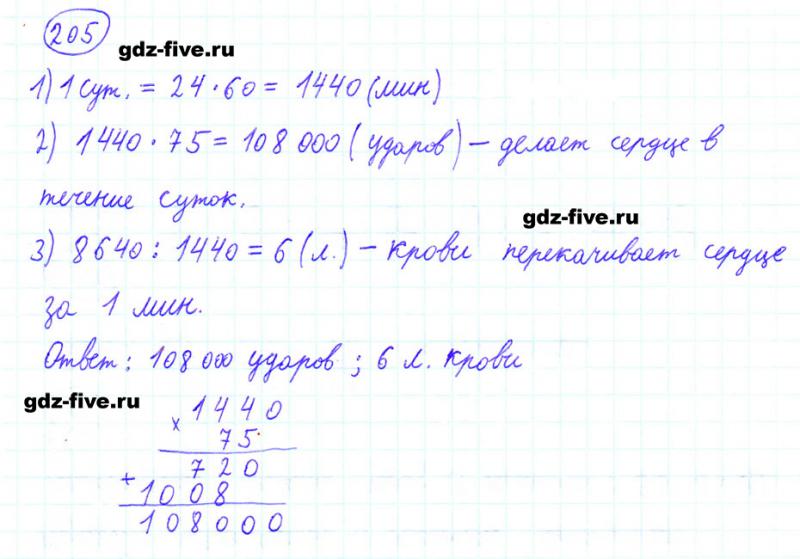 205
gdz-five.ru
1) 1 сут. = 24 · 60 = 1440 (мин)
2) 1440 · 75 = 108 000 (ударов) – делает сердце в
течение суток.
gdz-five.ru
3) 8640 : 1440 = 6 (л.) – крови перекачивает сердце
за 1 мин.
Ответ: 108 000 ударов ; 6 л. крови
gdz-five.ru
1440
× 75
720
+ 1008
108000